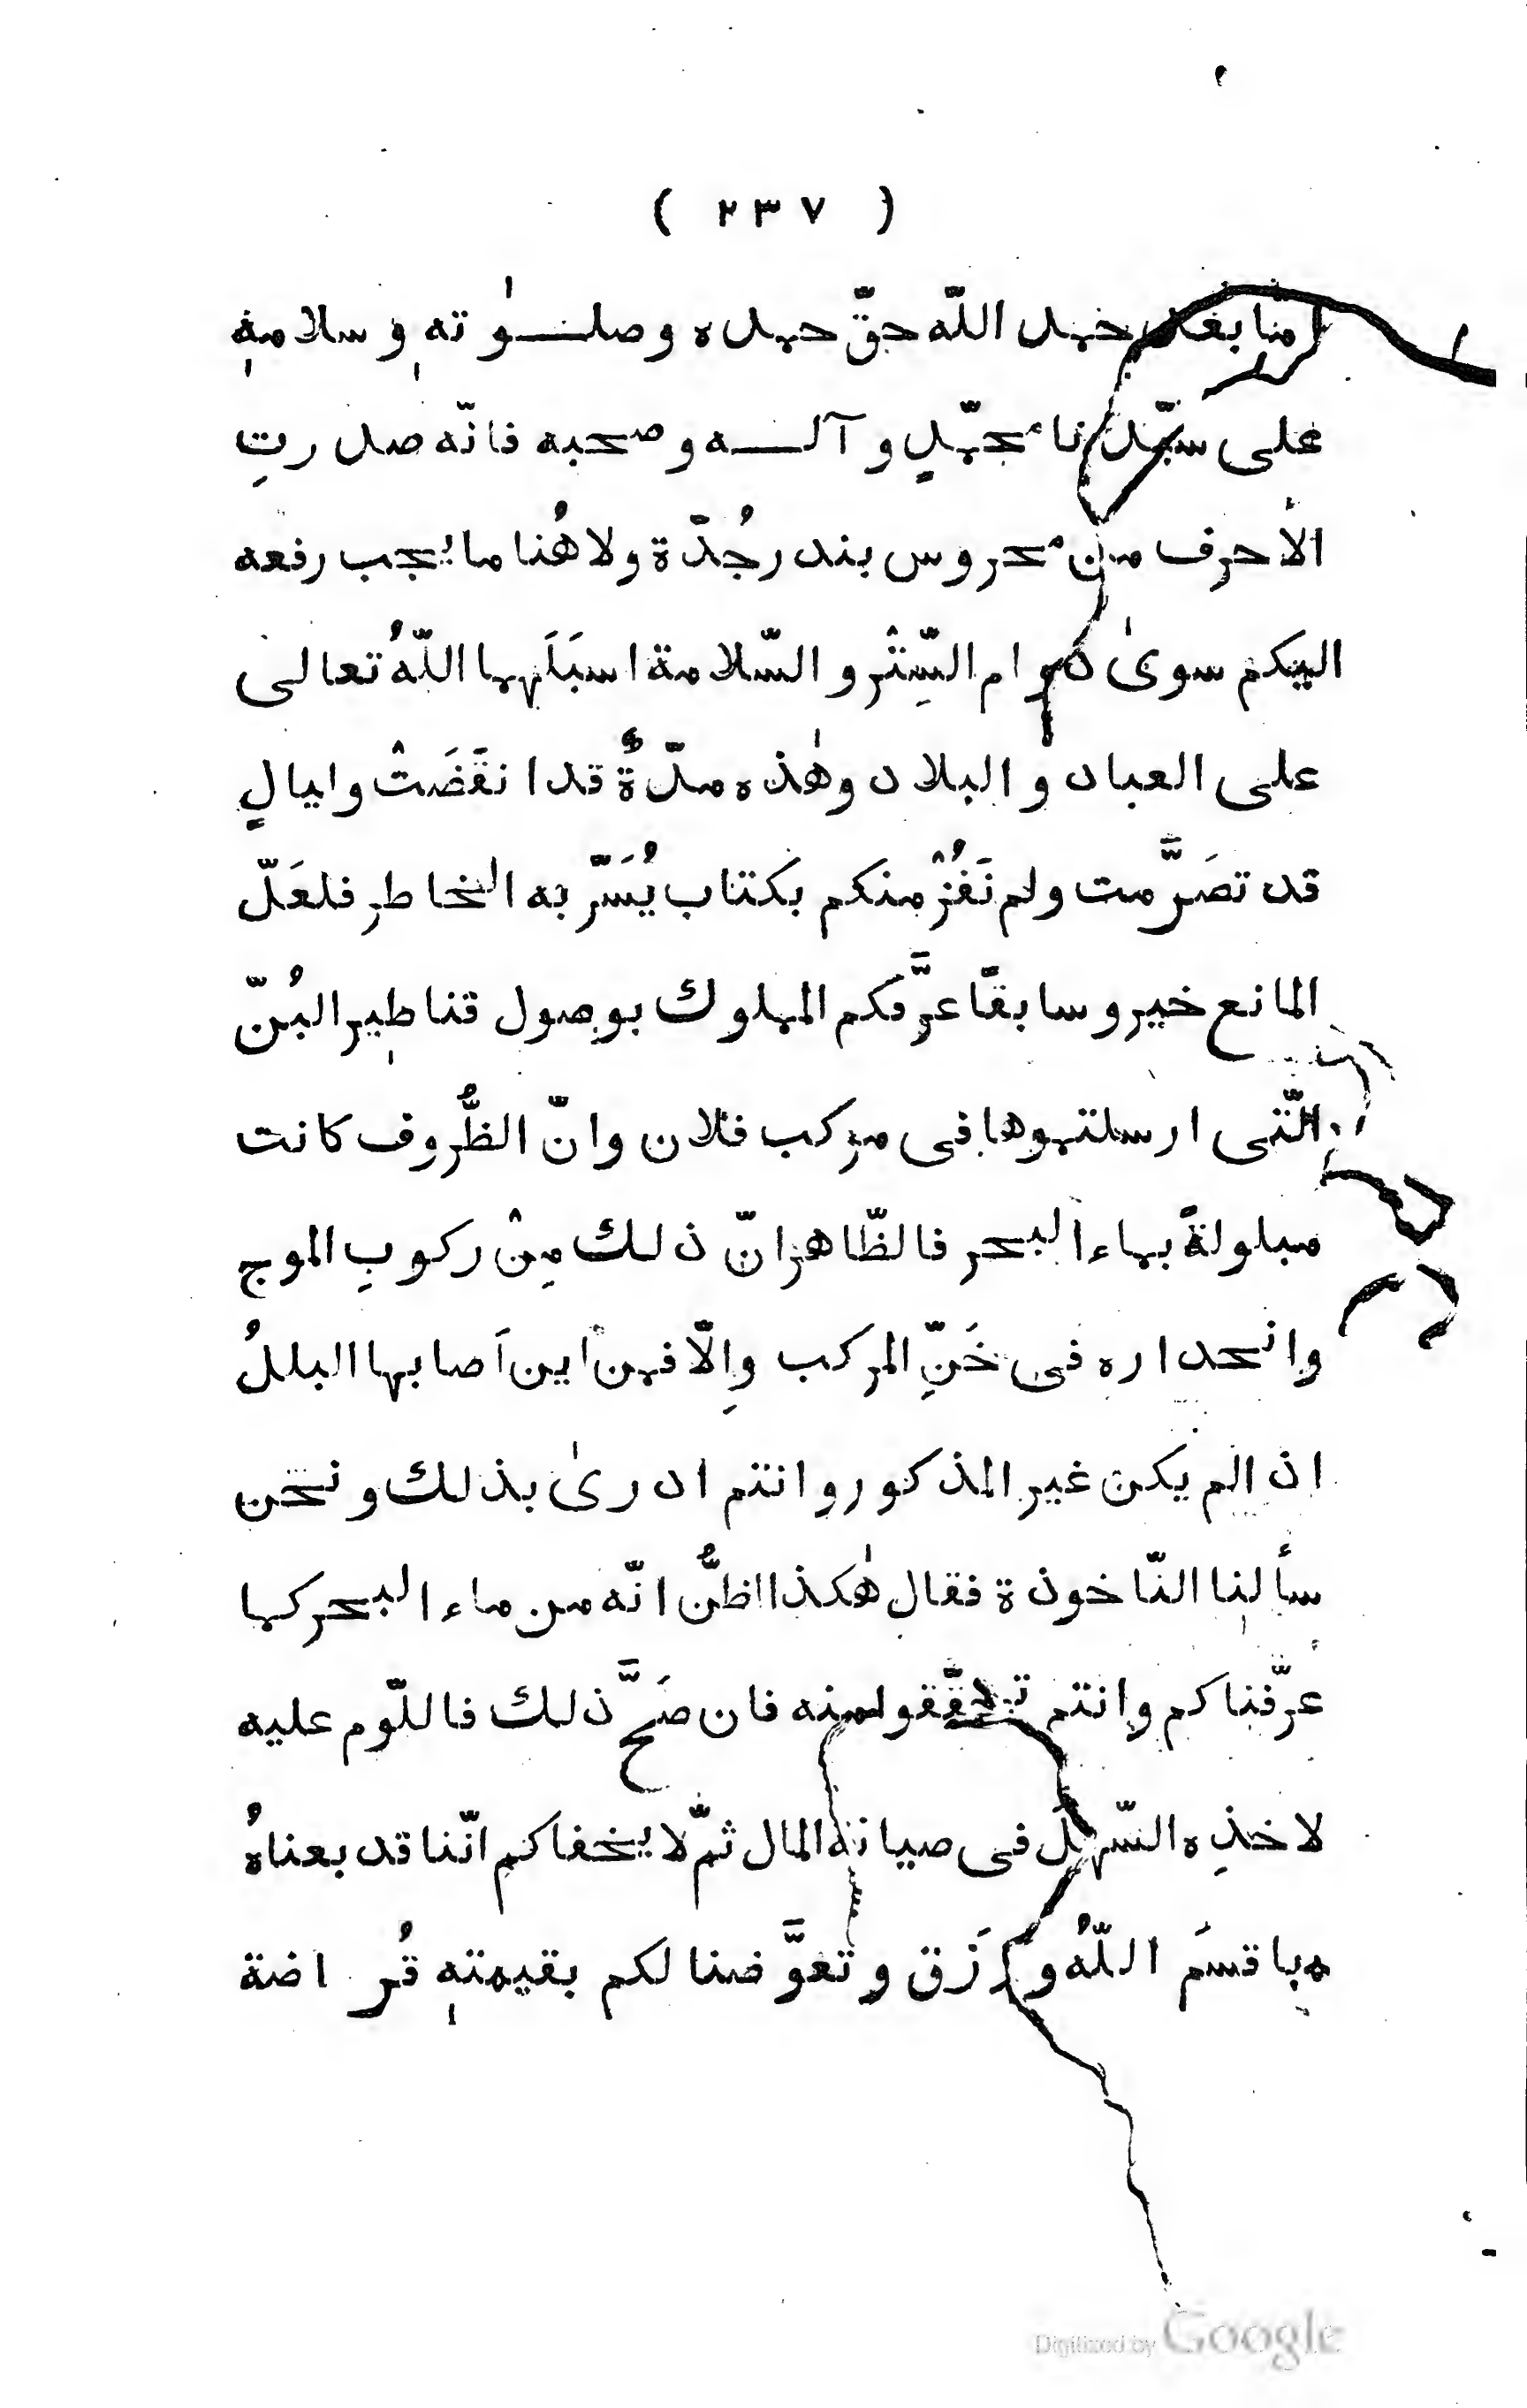 ( ٢٣٧ )
امّا بعد حمد اللّه حقّ حمده وصلٰوته وسلامه
على سيّدنا محمّدٍ وآله وصحبه فانّه صدرتِ
الأحرف من محروس بندر جُدّة ولا هُنا ما يجب رفعه
اليكم سوىٰ دوام السِّتْر والسّلامة اسبَلَهما اللّهُ تعالى
على العباد والبلاد وهٰذه مدّةٌ قد انقَضَتْ وليالٍ
قد تصَرَّمت ولم نَفُزْ منكم بكتاب يُسَرّ به الخاطر فلعَلّ
المانع خير وسابقًا عرَّفكم المملوك بوصول قناطير البُنّ
الّتى ارسلتموها فى مركب فلان وانّ الظُّروف كانت
مبلولةً بماء البحر فالظّاهر انّ ذلك مِنْ ركوبِ الموج
وانحداره فى خَنّ المركب واِلّا فمن اين اَصابها البللُ
اذ الم يكن غير المذكور وانتم ادرىٰ بذلك ونحن
سألنا النّاخوذة فقال هٰكذا اظنُّ انّه من ماء البحر كما
عرّفناكم وانتم تحقّقوا منه فان صَحَّ ذلك فاللّوم عليه
لاخذِه السّهلَ فى صيانة المال ثمّ لا يخفاكم انّنا قد بعناهُ
بما قسَمَ اللّهُ ورَزَق وتعوَّضنا لكم بقيمته قُراضة
Digitized by Google